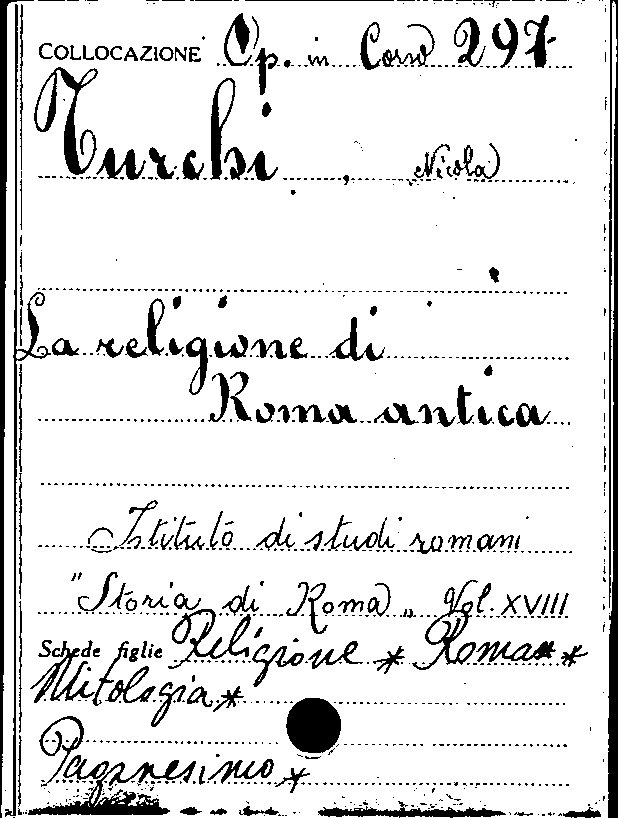 COLLOCAZIONE Op. in Corso 297
Turchi, Nicola
La religione di
Roma antica
Istituto di studi romani
"Storia di Roma" Vol. XVIII
Schede figlie Religione * Roma *
Mitologia *
Paganesimo *